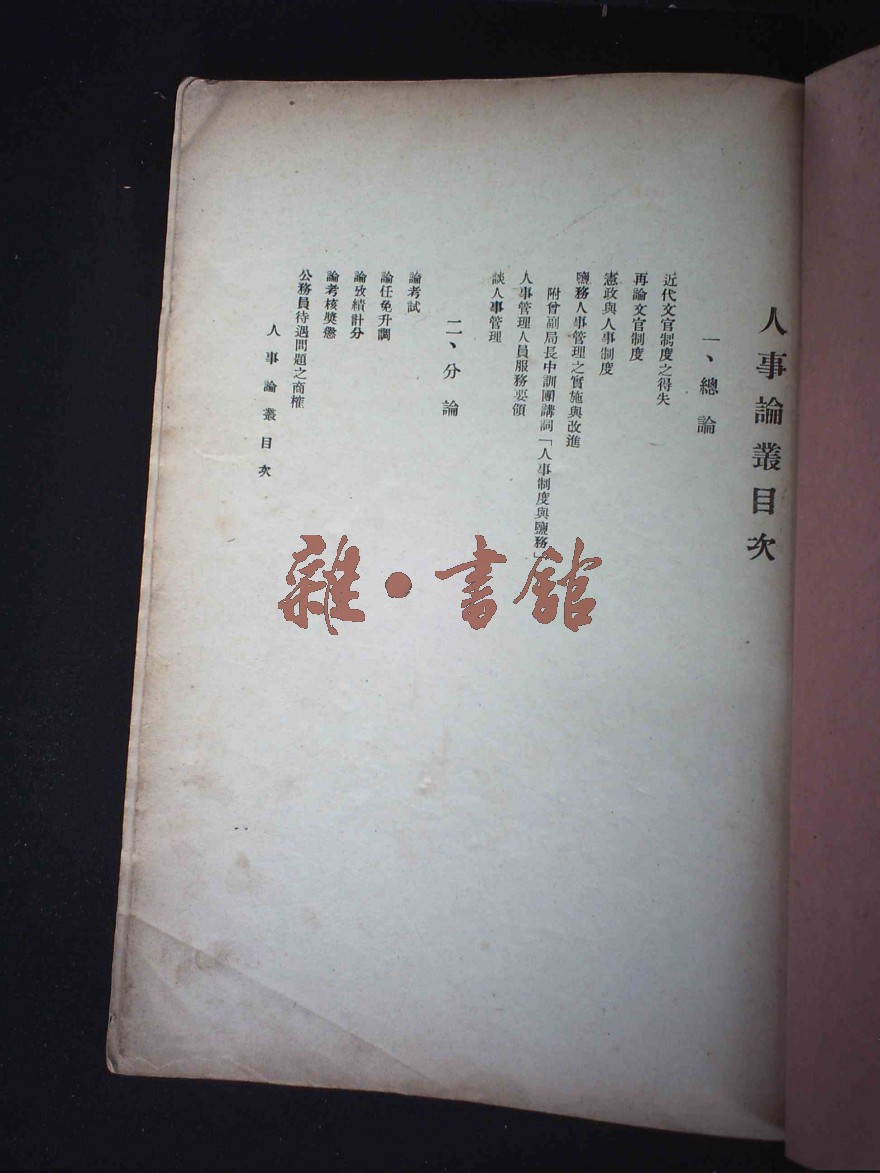 人事論叢目次
一、總論
近代文官制度之得失
再論文官制度
憲政與人事制度
鹽務人事管理之實施與改進
附曾副局長中訓團講詞「人事制度與鹽務」
人事管理人員服務要領
談人事管理
二、分論
論考試
論任免升調
論攷績計分
論考核獎懲
公務員待遇問題之商榷
人事論叢目次
雜•書館